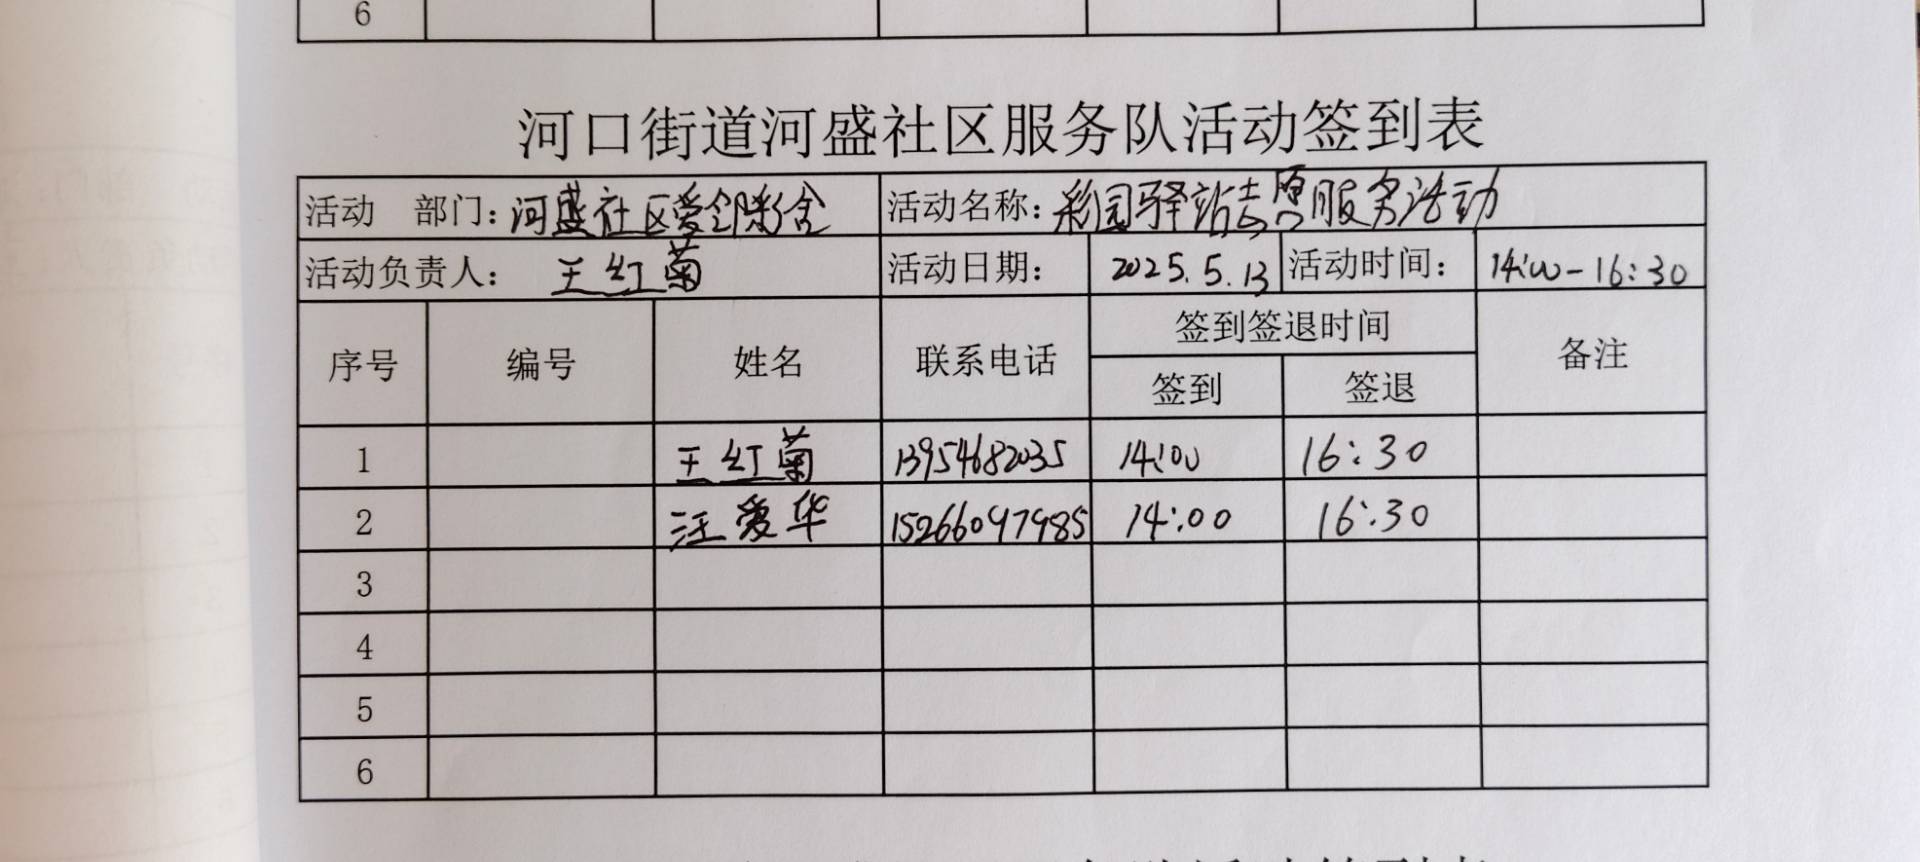 6
河口街道河盛社区服务队活动签到表
活动 部门：河盛社区爱邻彩舍 活动名称：彩园驿站志愿服务活动
活动负责人： 王红菊 活动日期： 2025.5.13 活动时间： 14:00-16:30
序号 编号 姓名 联系电话 签到签退时间 备注
签到 签退
1 王红菊 13954682035 14:00 16:30
2 汪爱华 15266097985 14:00 16:30
3
4
5
6